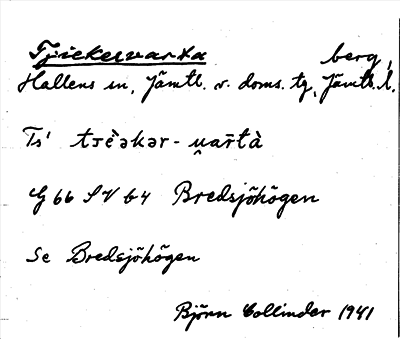 Tjiekervarta berg,
Hallens sn, Jämtl. v. doms. tg, Jämtl. l.
Ts' tᴣèəkər-u̯ar̄tà
G 66 SV b4 Bredsjöhögen
Se Bredsjöhögen
Björn Collinder 1941